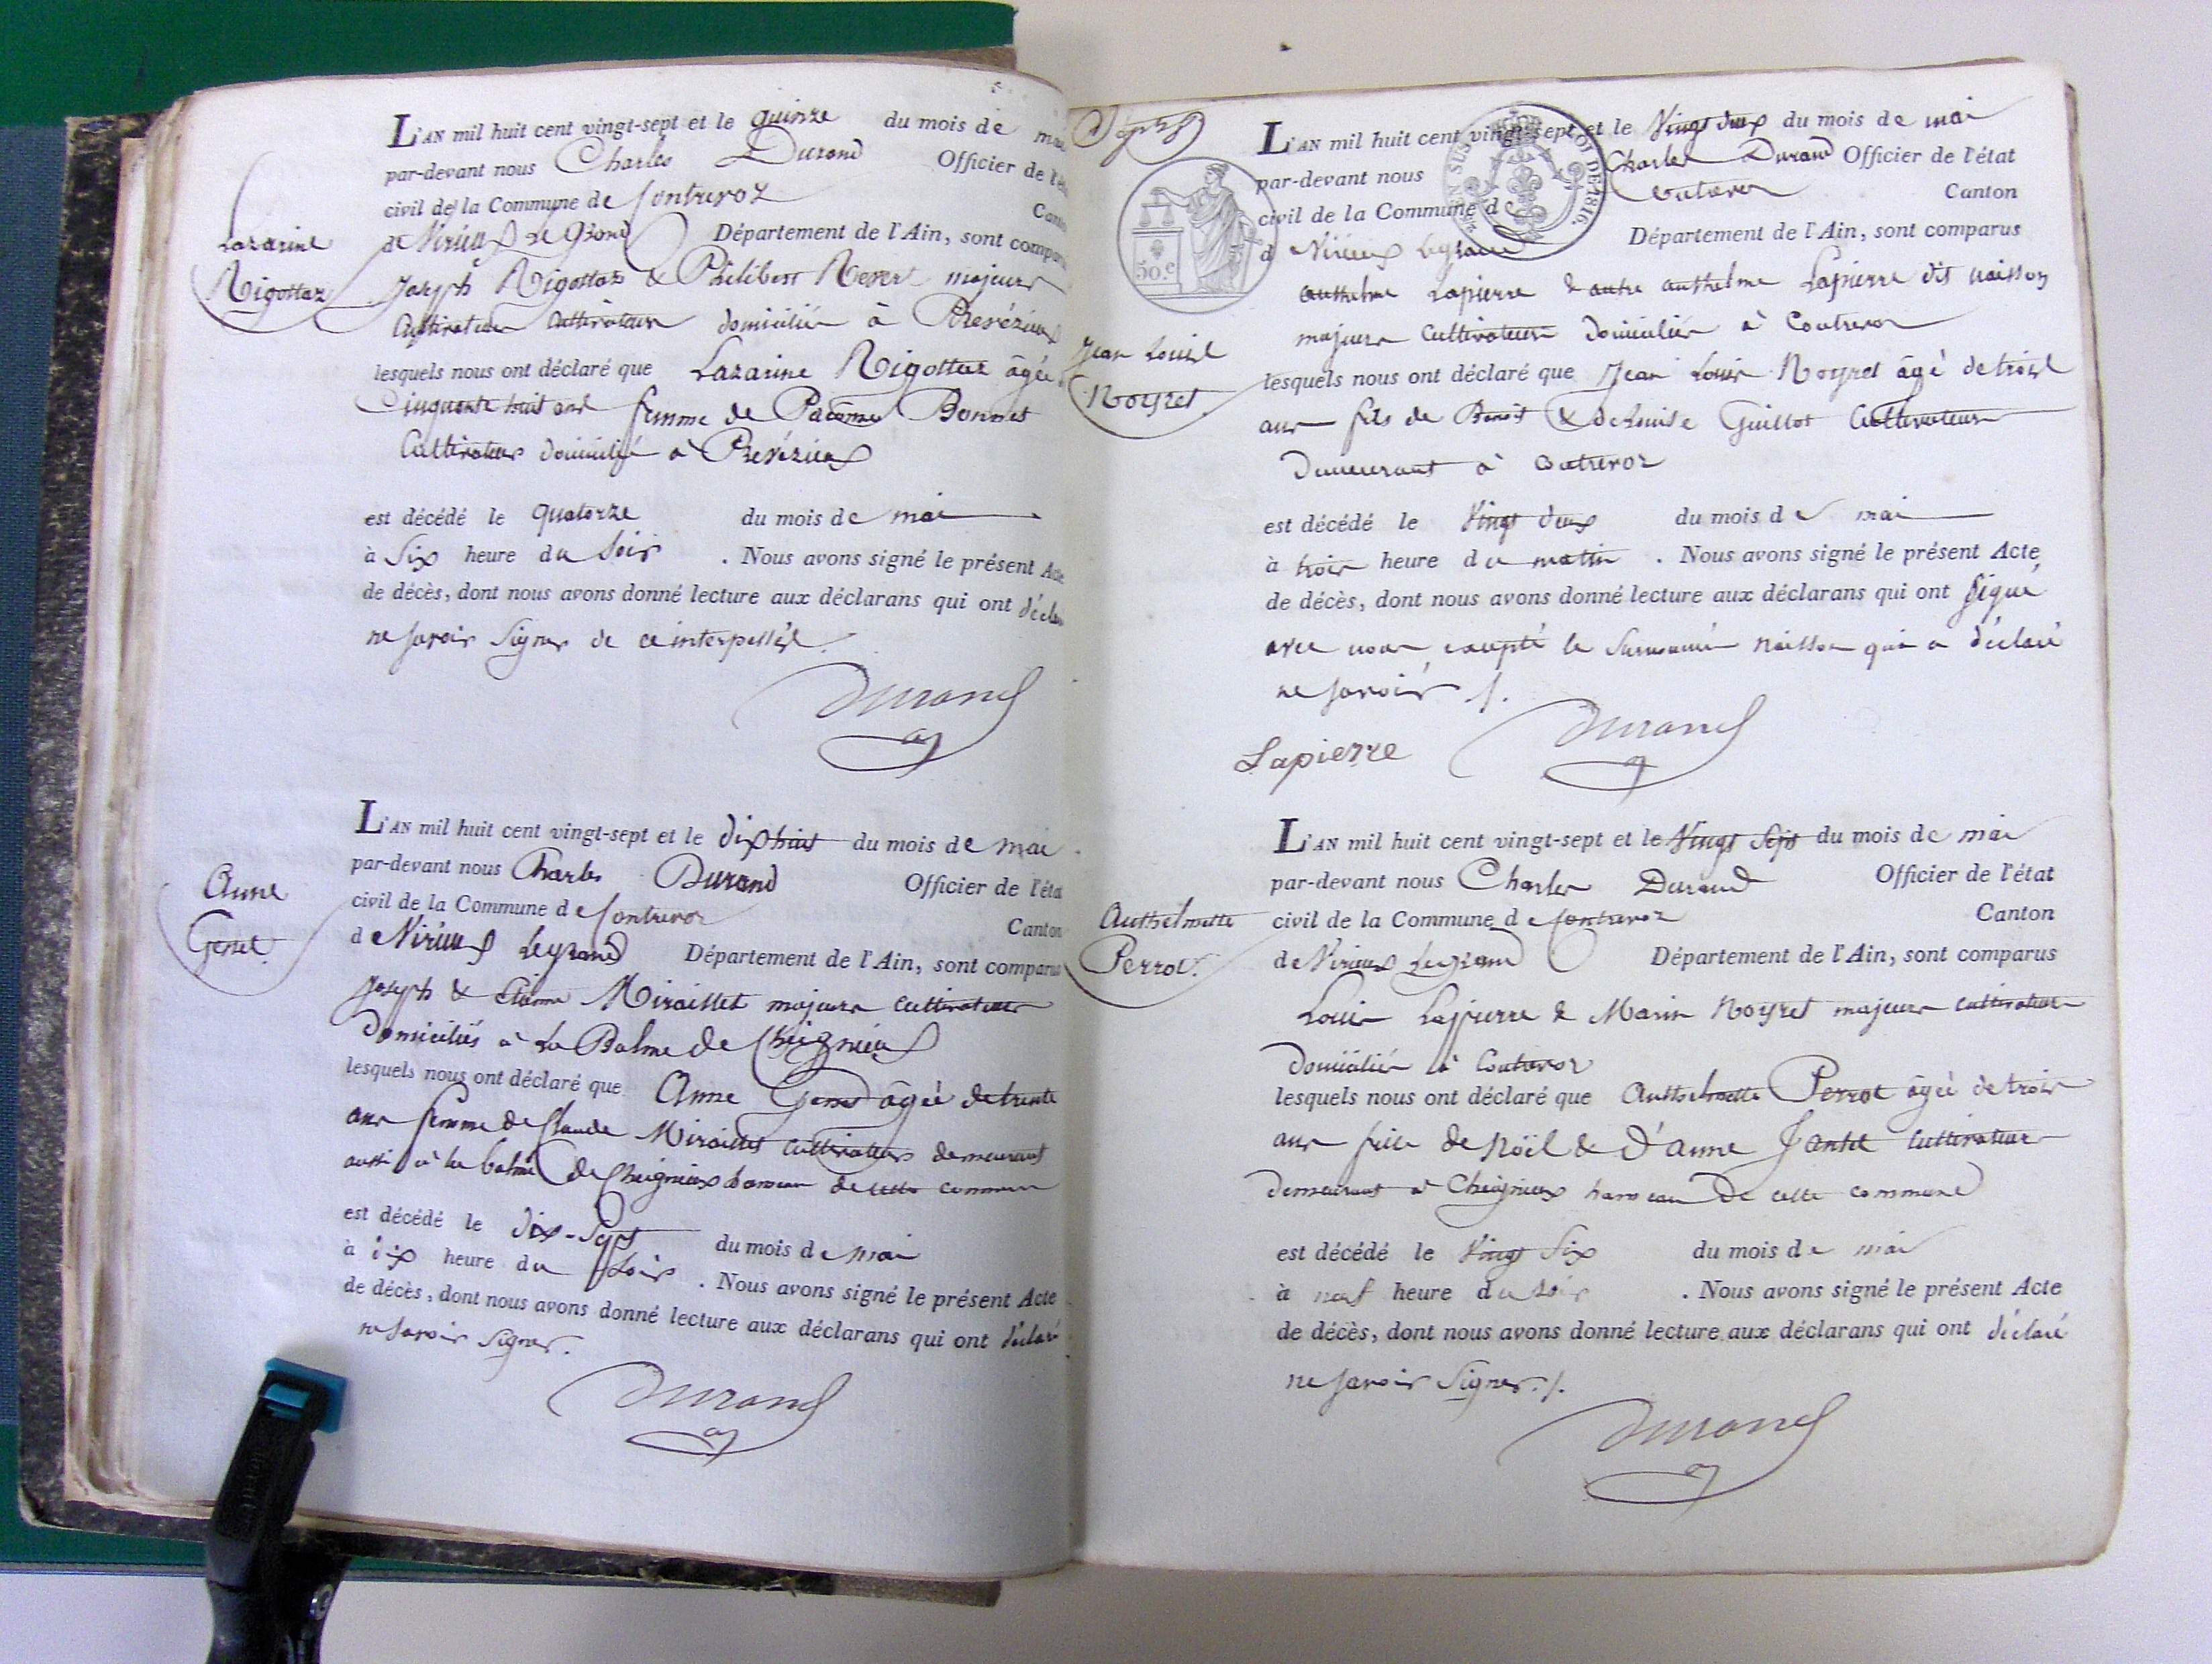 L'AN mil huit cent vingt-sept et le quinze du mois de mai
par-devant nous Charles Durand Officier de l'éta
civil de la Commune de Contrevoz Canton
de Virieux Le Grand Département de l'Ain, sont comparus
Lazarine
Rigottaz
Joseph Rigottaz & Philibert majeurs
Cultivateurs domiciliés à Prévézieux
lesquels nous ont déclaré que Lazarine Rigottaz âgée
Cinquante huit ans femme de Pacôme Bonnet
Cultivateur domicilié à Prévézieux
est décédé le quatorze du mois de mai
à Six heure du Soir . Nous avons signé le présent Acte
de décès, dont nous avons donné lecture aux déclarans qui ont déclaré
ne Savoir Signer de ce interpellés.
Durand
L'AN mil huit cent vingt-sept et le dix huit du mois de mai
par-devant nous Charles Durand Officier de l'état
civil de la Commune de Contrevoz Canton
d Virieux Legrand Département de l'Ain, sont comparus
Anne
Genet
Joseph & Miraillet majeurs Cultivateurs
Domiciliés à La Balme de Cheignieux
lesquels nous ont déclaré que Anne Genet âgée de trente
ans femme de Claude Miraillet Cultivateurs demeurant
aussi à la balme de Cheignieux hameau de cette commune
est décédé le dix-Sept du mois de mai
à dix heure du Soir . Nous avons signé le présent Acte
de décès, dont nous avons donné lecture aux déclarans qui ont déclaré
ne Savoir Signer.
Durand
50.c
ROI DE 1816.
L'AN mil huit cent vingt-sept et le Vingt deux du mois de mai
par-devant nous Charles Durand Officier de l'état
civil de la Commune de Contrevoz Canton
d Virieux Legrand Département de l'Ain, sont comparus
Anthelme Lapierre & autre anthelme Lapierre dit naisson
majeurs Cultivateurs Domiciliés à Contrevoz
Jean Louis
Noyret.
lesquels nous ont déclaré que Jean Louis Noyret âgé de trois
ans fils de Benoit & de Louise Guillot Cultivateurs
Demeurant à Contrevoz
est décédé le Vingt deux du mois de mai
à trois heure du matin . Nous avons signé le présent Acte
de décès, dont nous avons donné lecture aux déclarans qui ont Signé
avec nous excepté le Surnommé naisson qui a déclaré
ne Savoir /.
Lapierre Durand
L'AN mil huit cent vingt-sept et le Vingt Sept du mois de mai
par-devant nous Charles Durand Officier de l'état
civil de la Commune de Contrevoz Canton
de Virieux Legrand Département de l'Ain, sont comparus
Anthelmette
Perrot.
Louis Lapierre & Marin Noyret majeurs Cultivateurs
Domiciliés à Contrevoz
lesquels nous ont déclaré que Anthelmette Perrot âgée de trois
ans fille de Noël & D'anne Jantet Cultivateurs
demeurant à Cheignieux hameau De cette commune
est décédé le Vingt Six du mois de mai
à neuf heure du Soir . Nous avons signé le présent Acte
de décès, dont nous avons donné lecture aux déclarans qui ont déclaré
ne Savoir Signer./.
Durand